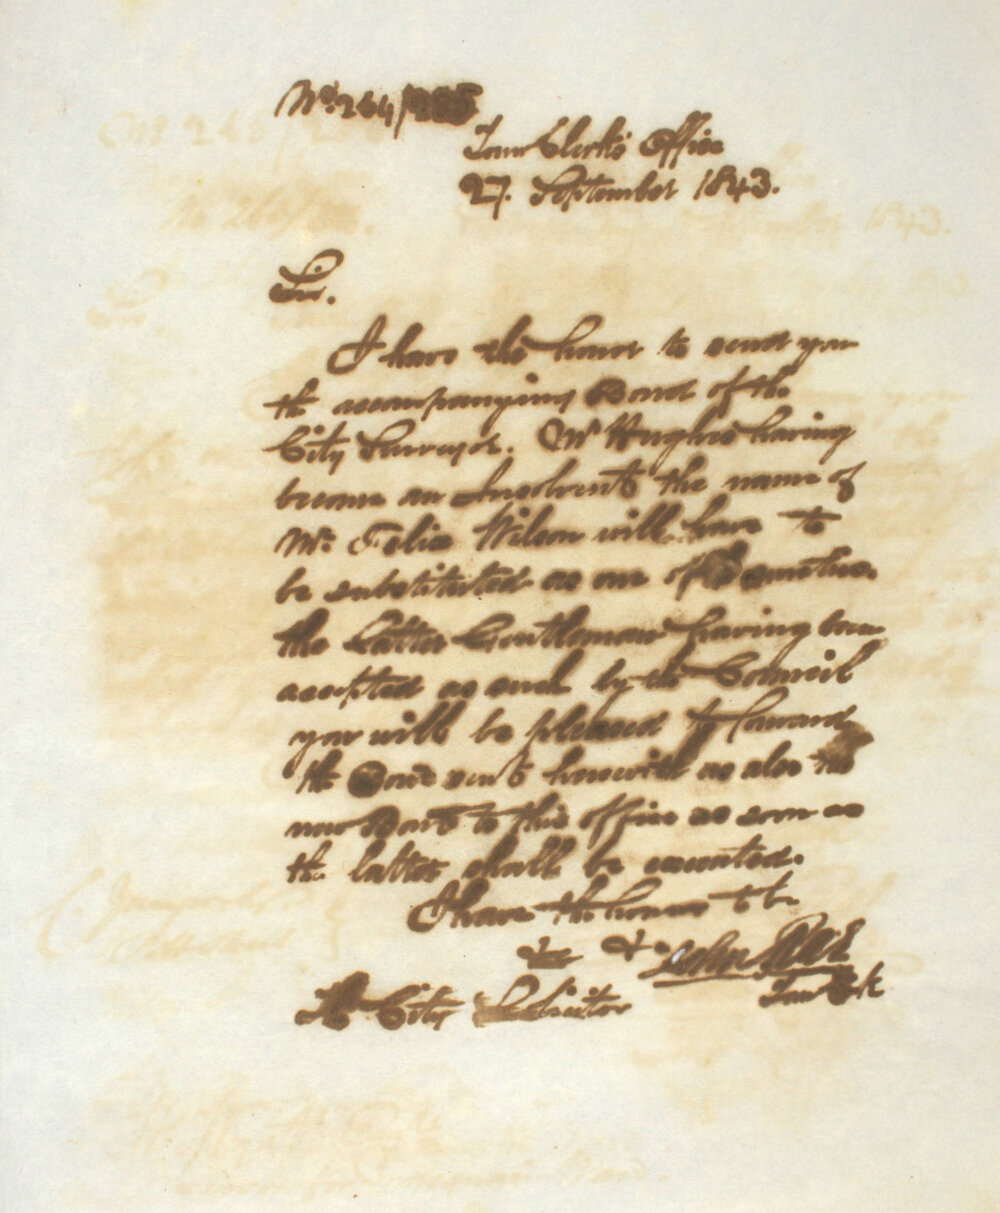 No. 264/265
Town Clerk's Office
27. September 1843.
Sir.
I have the honor to send you
the accompanying Bond of the
City Surveyor. Mr Hughes having
become an Insolvent the name of
Mr. Felix Wilson will have to
be substituted as one of
the Latter Gentleman having been
accepted as such by the Council
you will be pleased to forward
the Bond sent herewith as also the
new Bond to this office as soon as
the latter shall be executed.
I have the honor to be
&c &c John Rae
Town Clk
The City Solicitor